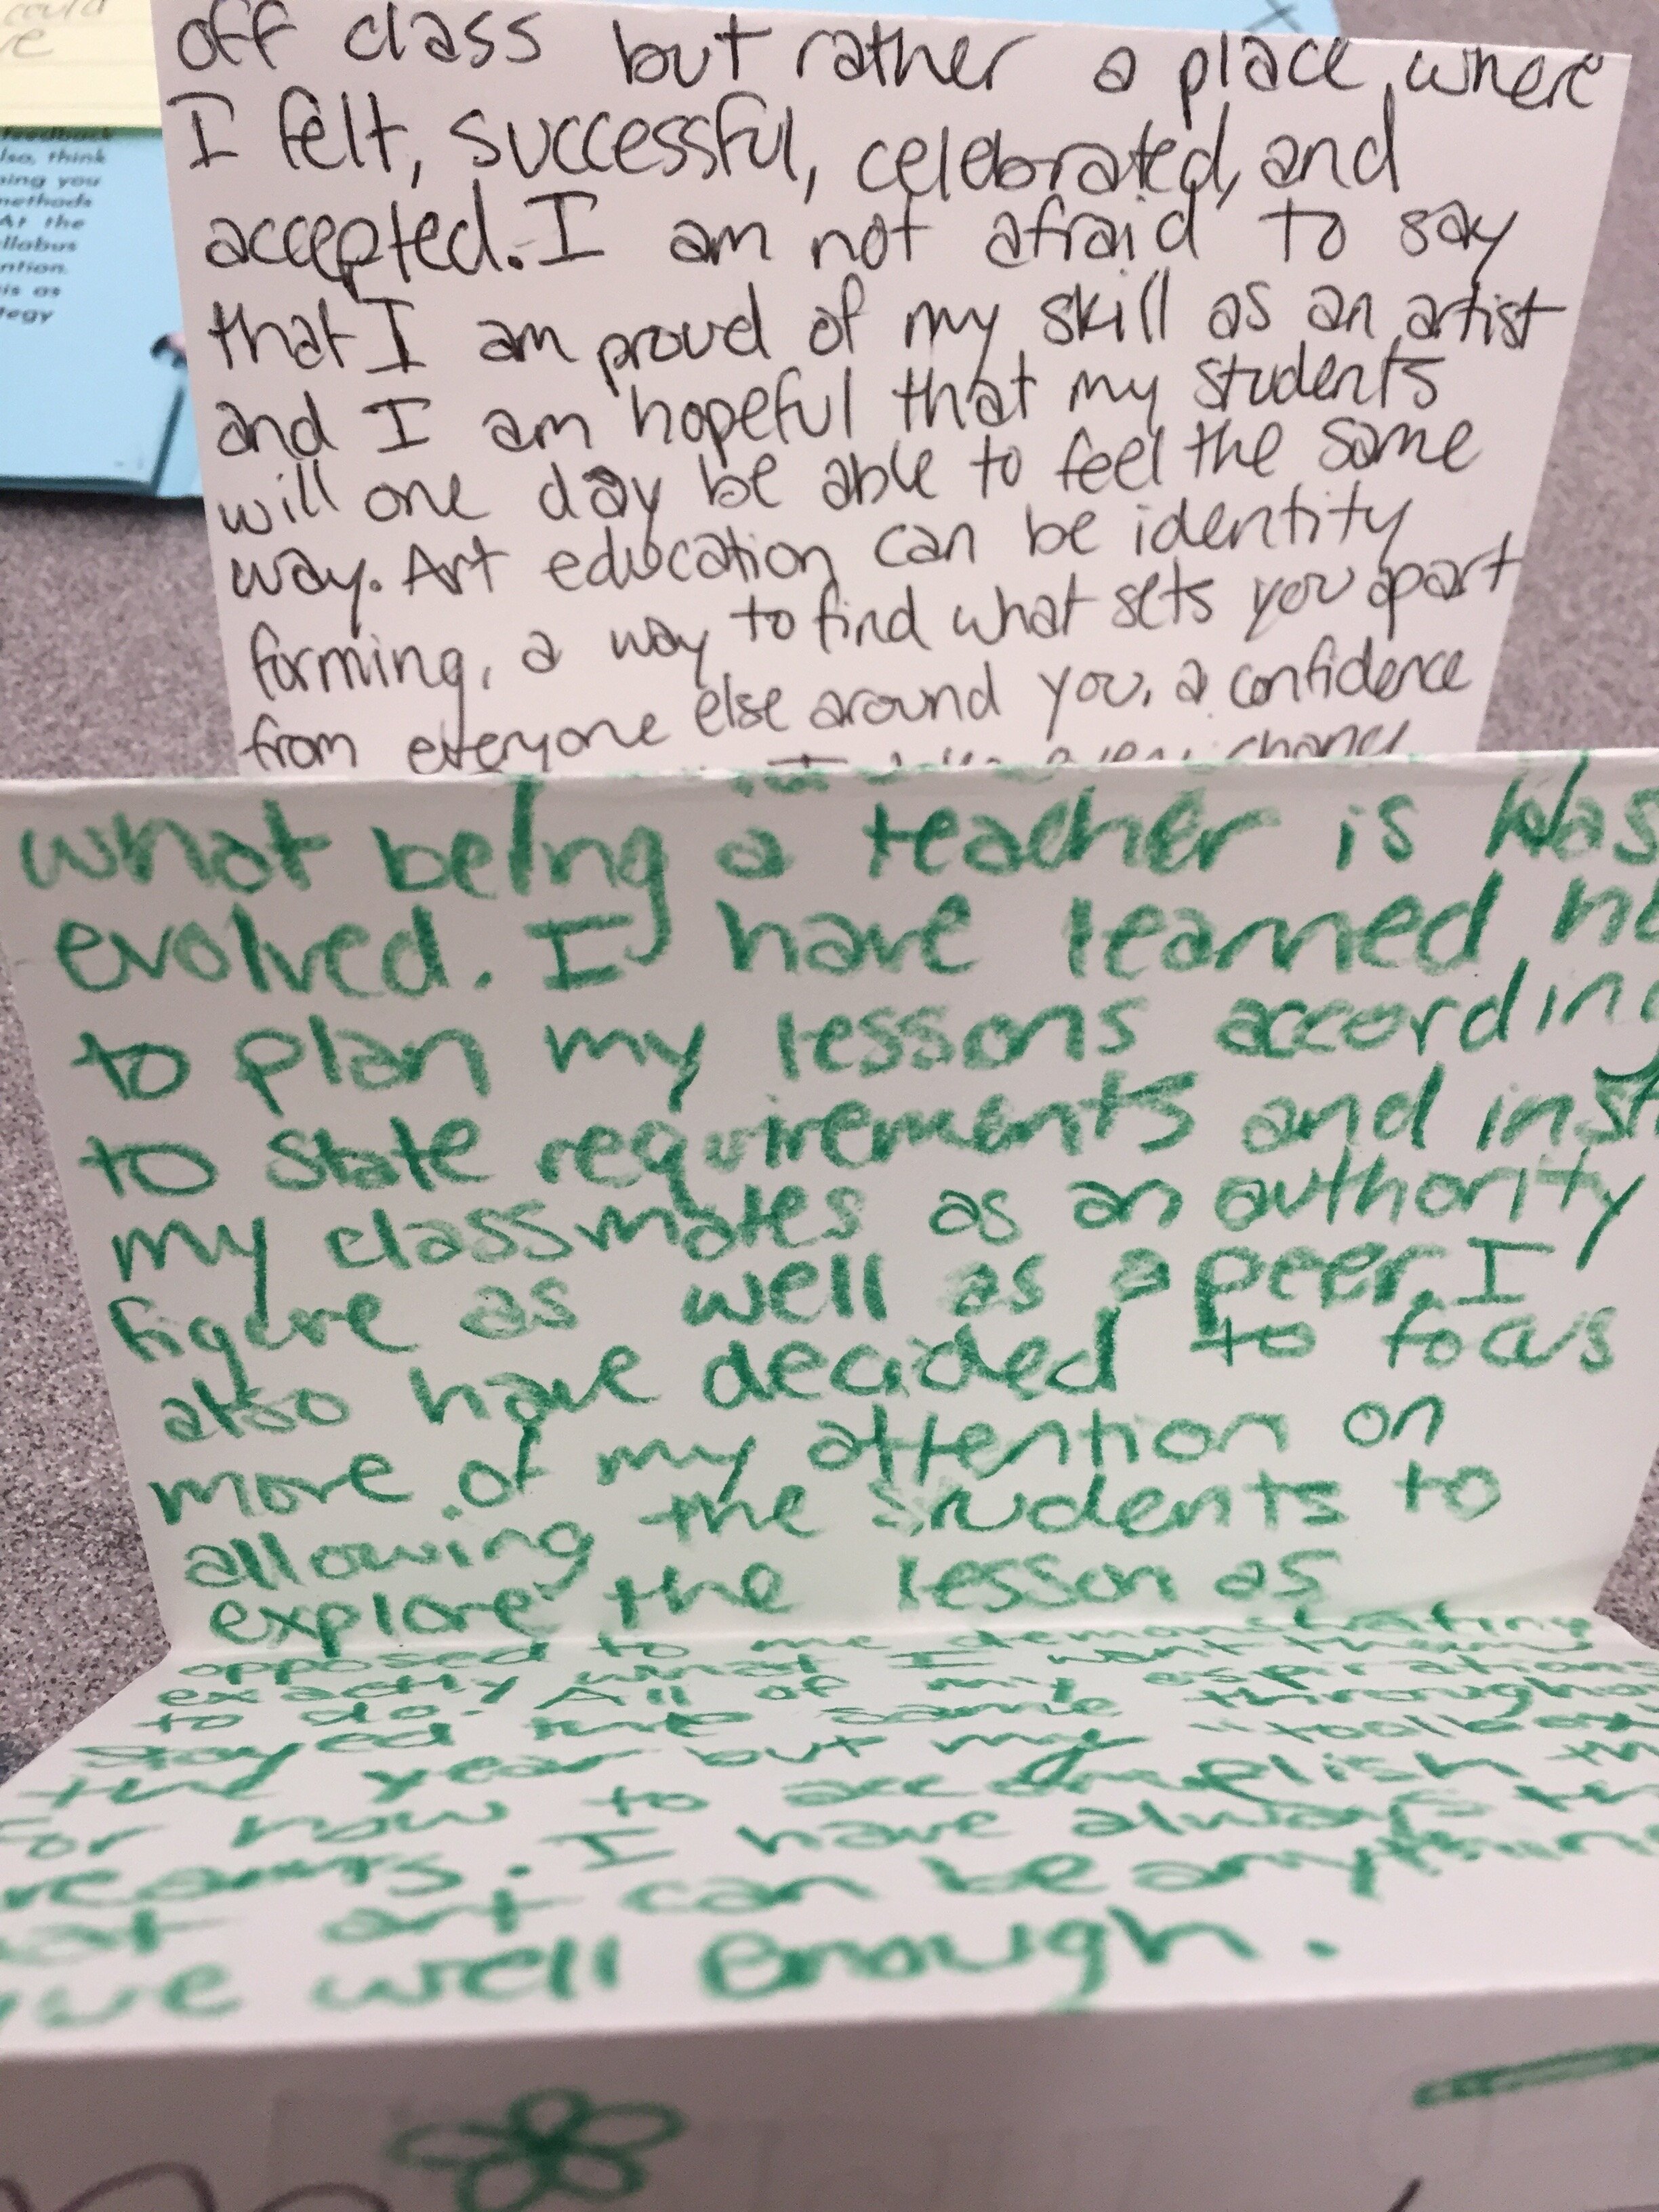 could
feedback
also, think
ning you
methods
At the
syllabus
ntion.
is as
tegy
off class but rather a place where
I felt, successful, celebrated, and
accepted. I am not afraid to say
that I am proud of my skill as an artist
and I am hopeful that my students
will one day be able to feel the same
way. Art education can be identity
forming, a way to find what sets you apart
from everyone else around you, a confidence
what being a teacher is has
evolved. I have learned
to plan my lessons according
to state requirements and inst
my classmates as an authority
figure as well as a peer. I
also have decided to focus
more of my attention on
allowing the students to
explore the lesson as
opposed to me demonstrating
exactly what I want them
to do. All of my aspirations
stayed the same throughou
the year but my "toolbox"
for how to accomplish
reams. I have always th
at art can be anythin
well enough.